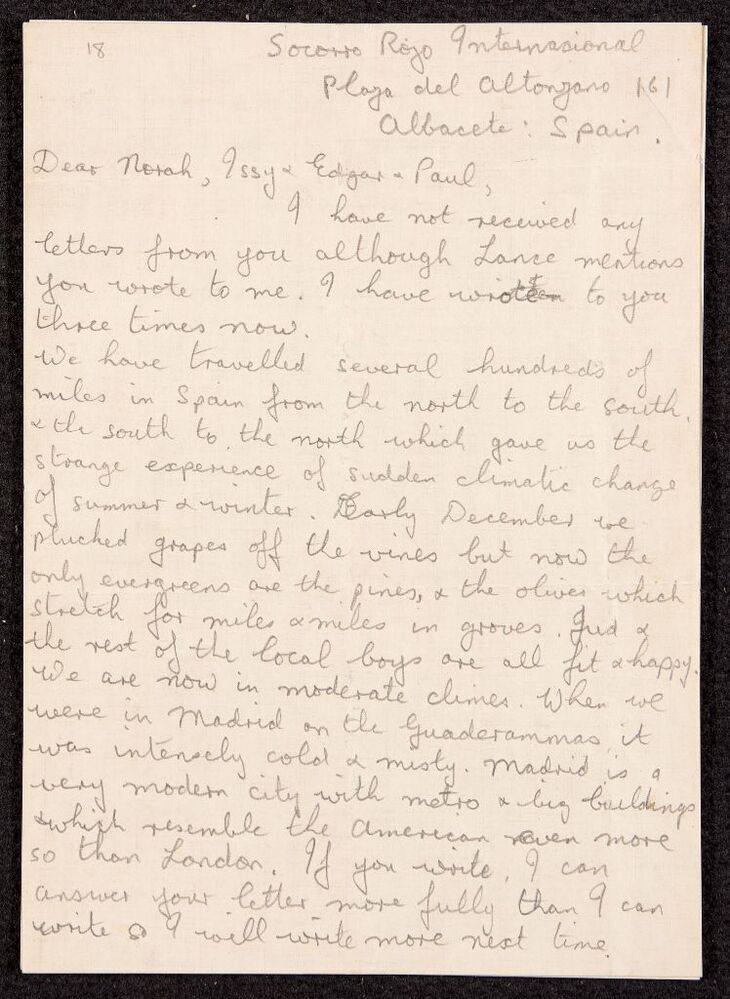 18
Socorro Rojo Internasional
Plaza del Altonzano 161
Albacete: Spain.
Dear Norah, Issy & Edgar & Paul,
I have not received any
letters from you although Lance mentions
you wrote to me. I have written to you
three times now.
We have travelled several hundreds of
miles in Spain from the north to the south,
& the south to the north which gave us the
strange experience of sudden climatic change
of summer & winter. Early December we
plucked grapes off the vines but now the
only evergreens are the pines, & the olives which
stretch for miles & miles in groves. Jud &
the rest of the local boys are all fit & happy.
We are now in moderate climes. When we
were in Madrid on the Guaderammas it
was intensely cold & misty. Madrid is a
very modern city with metro & big buildings
& which resemble the American even more
so than London. If you write, I can
answer your letter more fully than I can
write so I will write more next time.